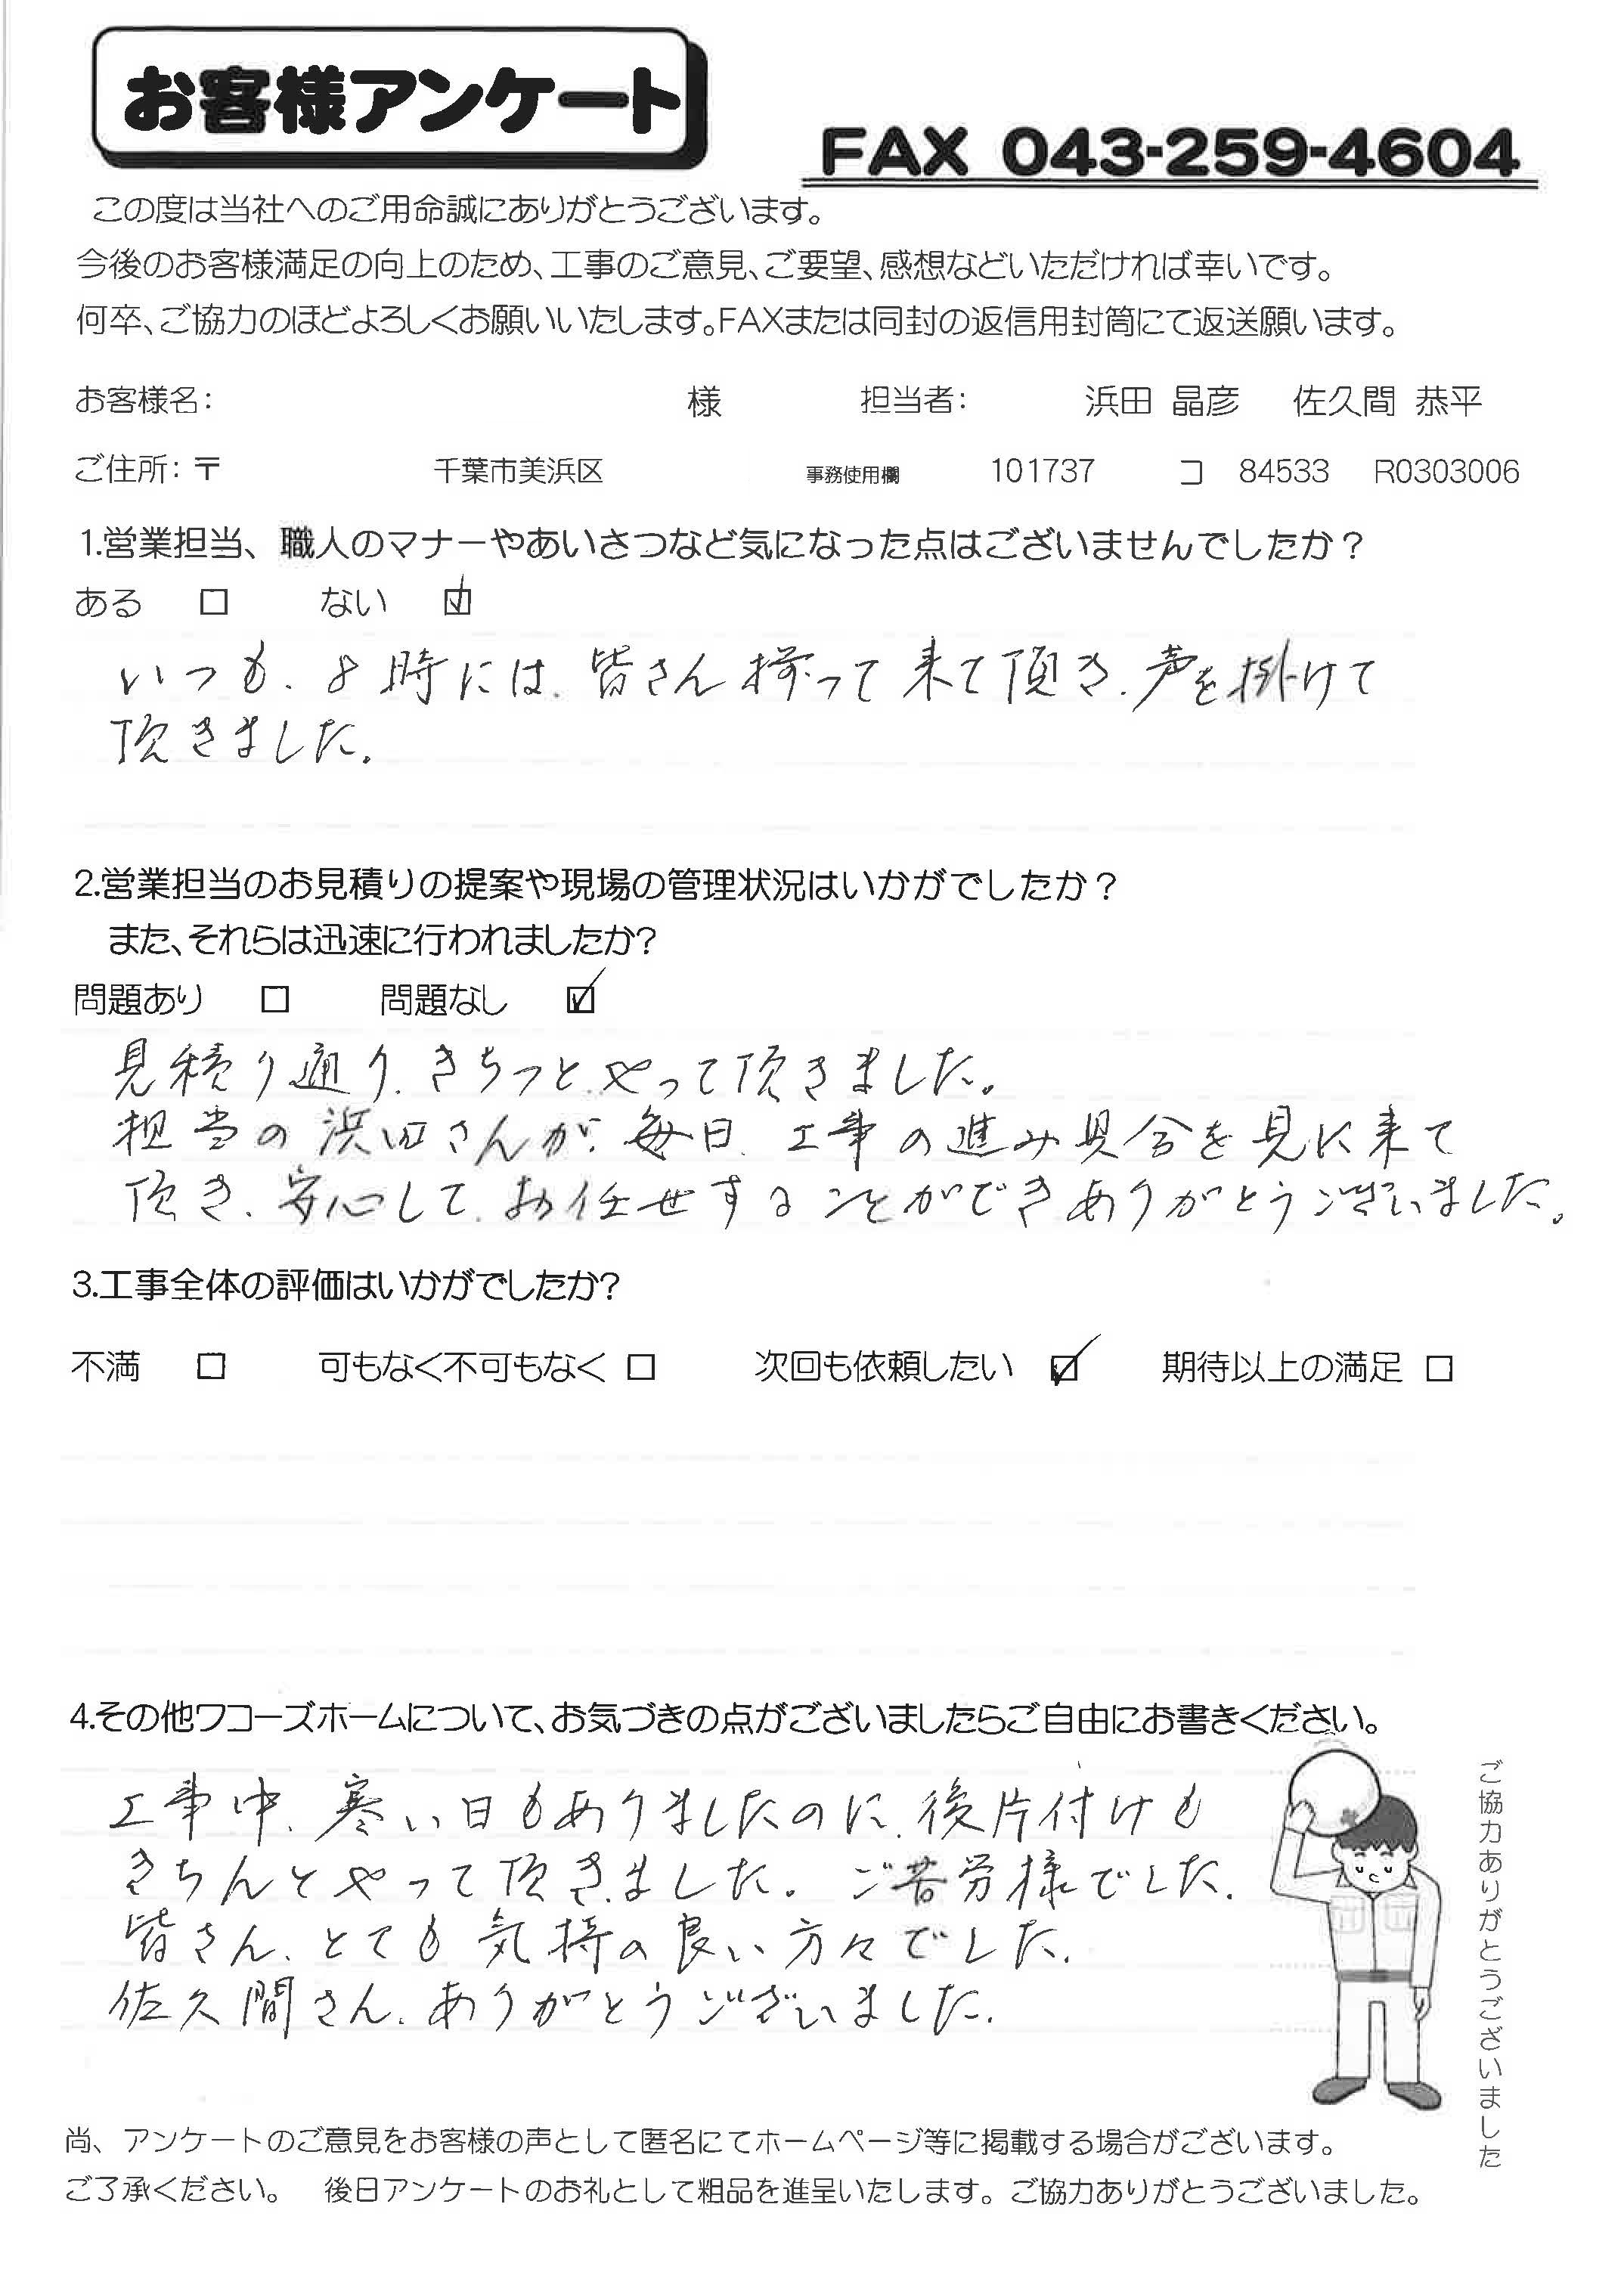 お客様アンケート
FAX 043-259-4604
この度は当社へのご用命誠にありがとうございます。
今後のお客様満足の向上のため、工事のご意見、ご要望、感想などいただければ幸いです。
何卒、ご協力のほどよろしくお願いいたします。FAXまたは同封の返信用封筒にて返送願います。
お客様名： 様 担当者： 浜田 晶彦 佐久間 恭平
ご住所：〒 千葉市美浜区 事務使用欄 101737 コ 84533 R0303006
1.営業担当、職人のマナーやあいさつなど気になった点はございませんでしたか？
ある □ ない ☑
いつも、8時には、皆さん揃って来て頂き、声を掛けて
頂きました。
2.営業担当のお見積りの提案や現場の管理状況はいかがでしたか？
また、それらは迅速に行われましたか?
問題あり □ 問題なし ☑
見積り通り、きちっと、やって頂きました。
担当の浜田さんが、毎日、工事の進み具合を見に来て
頂き、安心して、お任せすることができ、ありがとうございました。
3.工事全体の評価はいかがでしたか?
不満 □ 可もなく不可もなく □ 次回も依頼したい ☑ 期待以上の満足 □
4.その他ワコーズホームについて、お気づきの点がございましたらご自由にお書きください。
工事中、寒い日もありましたのに、後片付けも
きちんとやって頂きました。ご苦労様でした。
皆さん、とても気持の良い方々でした。
佐久間さん、ありがとうございました。
ご協力ありがとうございました
尚、アンケートのご意見をお客様の声として匿名にてホームページ等に掲載する場合がございます。
ご了承ください。 後日アンケートのお礼として粗品を進呈いたします。ご協力ありがとうございました。